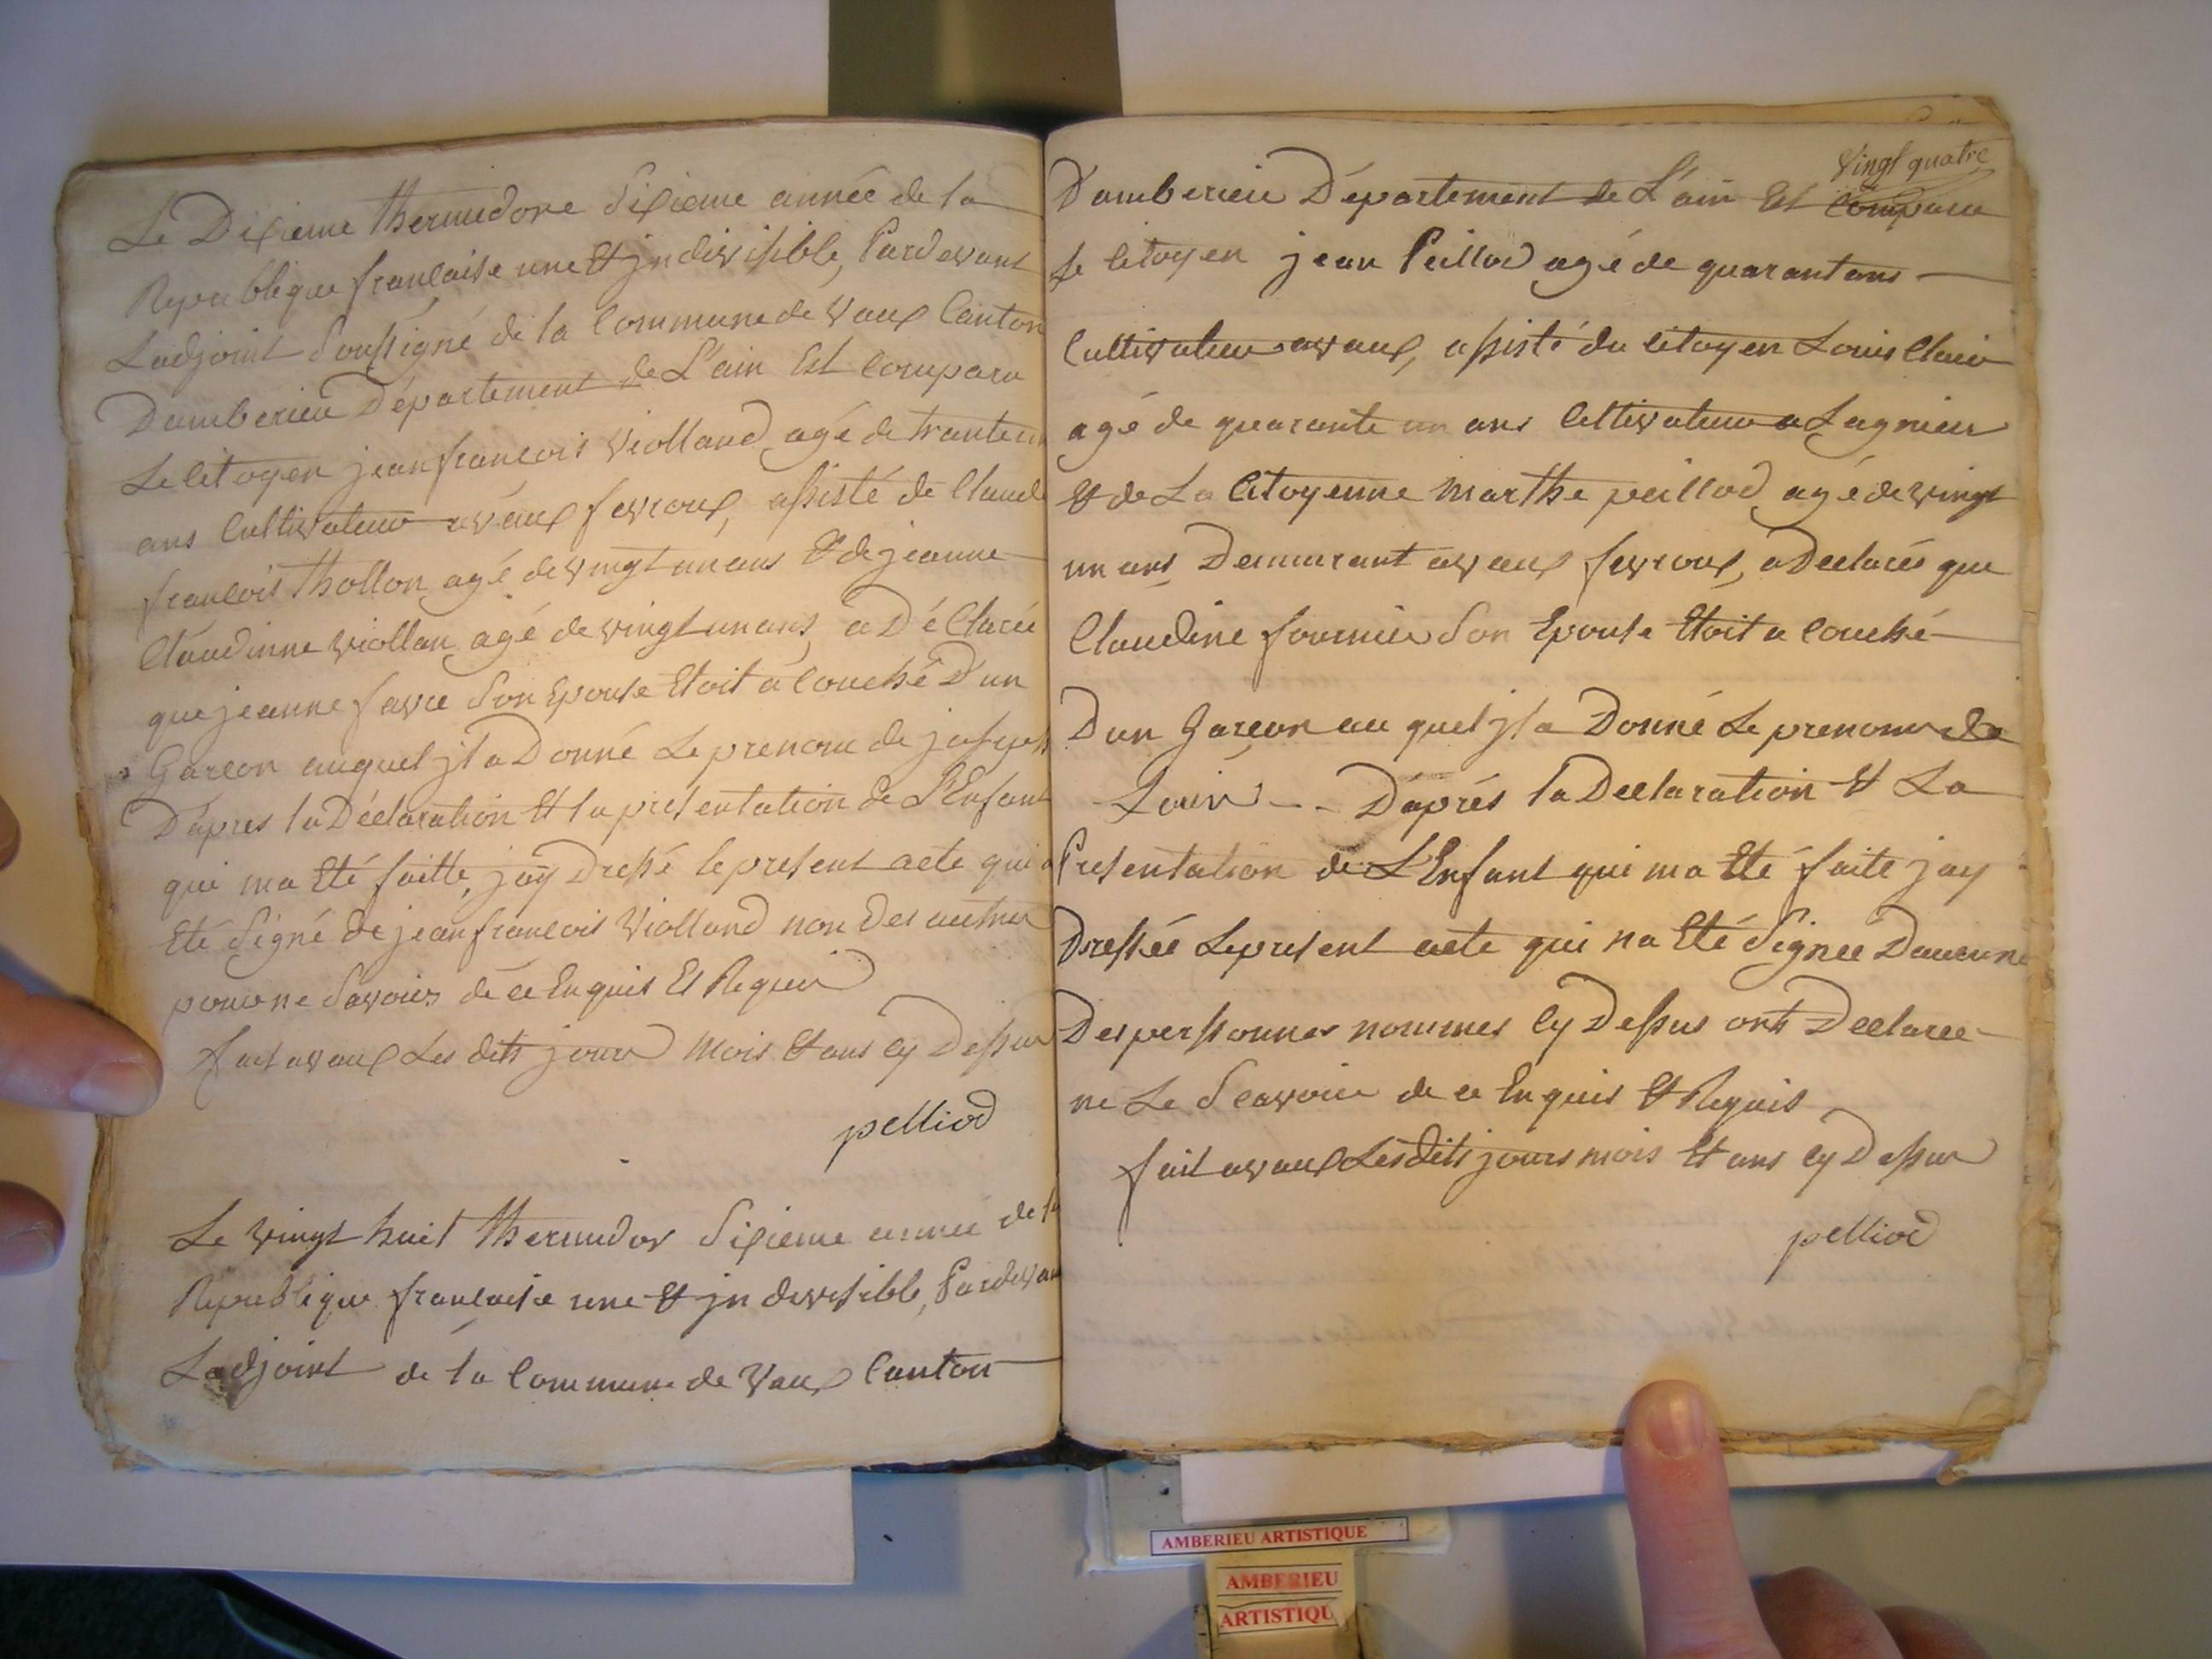 Le Dixieme thermidore Sixieme année de la
Republique francaise une et jndivisible, Pardevant
Ladjoint Soussigné de la Commune de Vaux Canton
Damberieu Département de L'ain Est Comparu
Le Citoyen jean francois Violland agé de trante un
ans Cultivateur a vaux fevroux, assisté de Claude
francois thollon agé de vingt un ans et de jeanne
Claudinne viollan agé de vingt un ans, a Déclaree
que jeanne favre Son Epouse Etoit acouché Dun
Garcon auquel jl a Donné Le prenom de joseph
Dapres la Déclaration Et la presentation de L'Enfant
qui ma Eté faitte, jay Dressé le present acte qui a
Eté Signé de jean francois Violland non des autres
pour ne Savoirs de ce Enquis Et Requis
fait a vaux Les dits jour mois et ans cy Dessus
pelliod
Le vingt huit thermidor Sixieme annee de la
Republique francaise une et jn divisible, Pardevan
Ladjoint de la Commune de Vaux Canton
Vingt quatre
Damberieu Département de L'ain Et Comparu
Le Citoyen jean Peillod agé de quarant ans
Cultivateur a vaux, assisté du Citoyen Louis Claire
agé de quarante un ans Celtivateur a Lagnieu
et de La Citoyenne marthe peillod agé de vingt
un ans Demeurant a vaux fevroux, a Declareé que
Claudine fournier Son Epouse Etoit acouché
Dun Garçon au quel jl a Donné Le prenom de
Louis -- Daprés la Declaration et La
Presentation de L'Enfant qui ma Eté faite jay
Dresseé Le present acte qui na Eté Signee Daucune
Des perssonnes nommes cy Dessus ont Declaree
ne Le Scavoir de ce Enquis et Requis
fait a vaux Les dits jours mois Et ans cy Dessus
pelliod
AMBERIEU ARTISTIQUE
AMBERIEU
ARTISTIQU